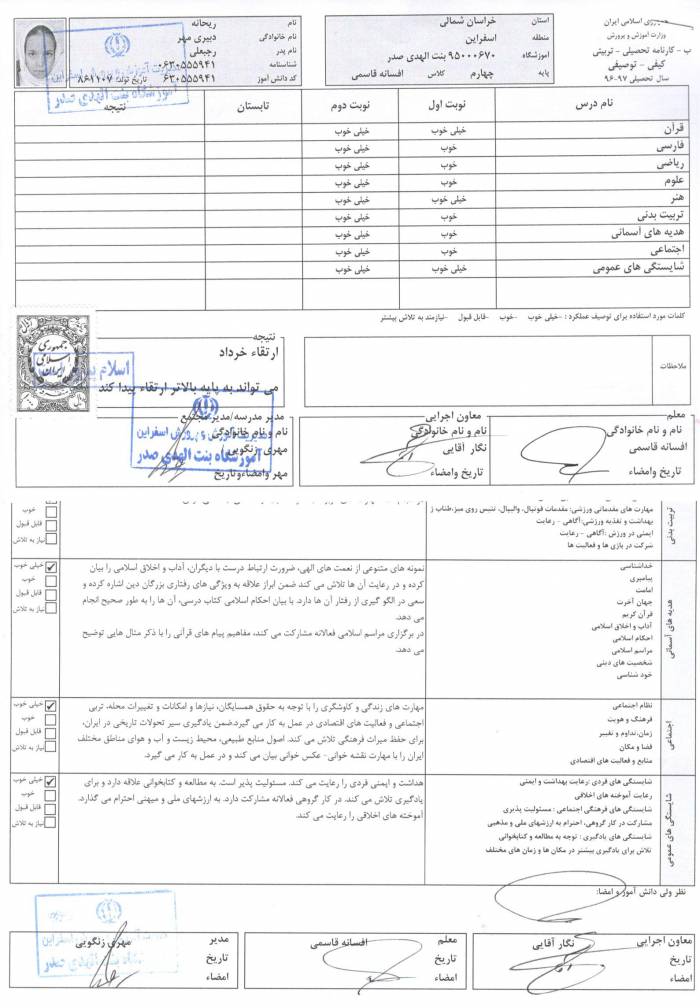 جمهوری اسلامی ایران
وزارت آموزش و پرورش
ب - کارنامه تحصیلی - تربیتی
کیفی - توصیفی
سال تحصیلی ۹۷-۹۶
استان خراسان شمالی
منطقه اسفراین
آموزشگاه ۹۵۰۰۰۶۷۰ بنت الهدی صدر
پایه چهارم کلاس افسانه قاسمی
نام ریحانه
نام خانوادگی دبیری مهر
نام پدر رجبعلی
شناسنامه ۰۶۳۰۵۵۵۹۴۱
کد دانش آموز ۰۶۳۰۵۵۵۹۴۱ تاریخ تولد ۸۶۱۱۰۷
نام درس نوبت اول نوبت دوم تابستان نتیجه
قرآن خیلی خوب خیلی خوب
فارسی خوب خیلی خوب
ریاضی خوب خیلی خوب
علوم خوب خیلی خوب
هنر خیلی خوب خیلی خوب
تربیت بدنی خوب خیلی خوب
هدیه های آسمانی خوب خیلی خوب
اجتماعی خوب خیلی خوب
شایستگی های عمومی خیلی خوب خیلی خوب
کلمات مورد استفاده برای توصیف عملکرد : -خیلی خوب -خوب -قابل قبول -نیازمند به تلاش بیشتر
ملاحظات
نتیجه
ارتقاء خرداد
می تواند به پایه بالاتر ارتقاء پیدا کند
جمهوری
اسلامی
ایران
معلم
نام و نام خانوادگی
افسانه قاسمی
تاریخ وامضاء
معاون اجرایی
نام و نام خانوادگی
نگار آقایی
تاریخ وامضاء
مدیر مدرسه/مدیر مجتمع
نام و نام خانوادگی
مهری زنگویی
مهر وامضاءوتاریخ
آموزشگاه بنت الهدی صدر
تربیت بدنی
مهارت های مقدماتی ورزشی: مقدمات فوتبال، والیبال، تنیس روی میز،طناب ز
بهداشت و تغذیه ورزشی:آگاهی - رعایت
ایمنی در ورزش :آگاهی - رعایت
شرکت در بازی ها و فعالیت ها
خوب
قابل قبول
نیاز به تلاش
هدیه های آسمانی
خداشناسی
پیامبری
امامت
جهان آخرت
قرآن کریم
آداب و اخلاق اسلامی
احکام اسلامی
مراسم اسلامی
شخصیت های دینی
خود شناسی
نمونه های متنوعی از نعمت های الهی، ضرورت ارتباط درست با دیگران، آداب و اخلاق اسلامی را بیان
کرده و در رعایت آن ها تلاش می کند ضمن ابراز علاقه به ویژگی های رفتاری بزرگان دین اشاره کرده و
سعی در الگو گیری از رفتار آن ها دارد. با بیان احکام اسلامی کتاب درسی، آن ها را به طور صحیح انجام
می دهد.
در برگزاری مراسم اسلامی فعالانه مشارکت می کند، مفاهیم پیام های قرآنی را با ذکر مثال هایی توضیح
می دهد.
خیلی خوب
خوب
قابل قبول
نیاز به تلاش
اجتماعی
نظام اجتماعی
فرهنگ و هویت
زمان،تداوم و تغییر
فضا و مکان
منابع و فعالیت های اقتصادی
مهارت های زندگی و کاوشگری را با توجه به حقوق همسایگان، نیازها و امکانات و تغییرات محله، تربی
اجتماعی و فعالیت های اقتصادی در عمل به کار می گیرد.ضمن یادگیری سیر تحولات تاریخی در ایران،
برای حفظ میراث فرهنگی تلاش می کند. اصول منابع طبیعی، محیط زیست و آب و هوای مناطق مختلف
ایران را با مهارت نقشه خوانی- عکس خوانی بیان می کند و در عمل به کار می گیرد.
خیلی خوب
خوب
قابل قبول
نیاز به تلاش
شایستگی های عمومی
شایستگی های فردی :رعایت بهداشت و ایمنی
رعایت آموخته های اخلاقی
شایستگی های فرهنگی اجتماعی : مسئولیت پذیری
مشارکت در کار گروهی، احترام به ارزشهای ملی و مذهبی
شایستگی های یادگیری : توجه به مطالعه و کتابخوانی
تلاش برای یادگیری بیشتر در مکان ها و زمان های مختلف
هداشت و ایمنی فردی را رعایت می کند. مسئولیت پذیر است. به مطالعه و کتابخوانی علاقه دارد و برای
یادگیری تلاش می کند. در کار گروهی فعالانه مشارکت دارد. به ارزشهای ملی و میهنی احترام می گذارد.
آموخته های اخلاقی را رعایت می کند.
خیلی خوب
خوب
قابل قبول
نیاز به تلاش
نظر ولی دانش آموز و امضا:
معاون اجرایی نگار آقایی
تاریخ
امضاء
معلم افسانه قاسمی
تاریخ
امضاء
مدیر مهری زنگویی
تاریخ
امضاء